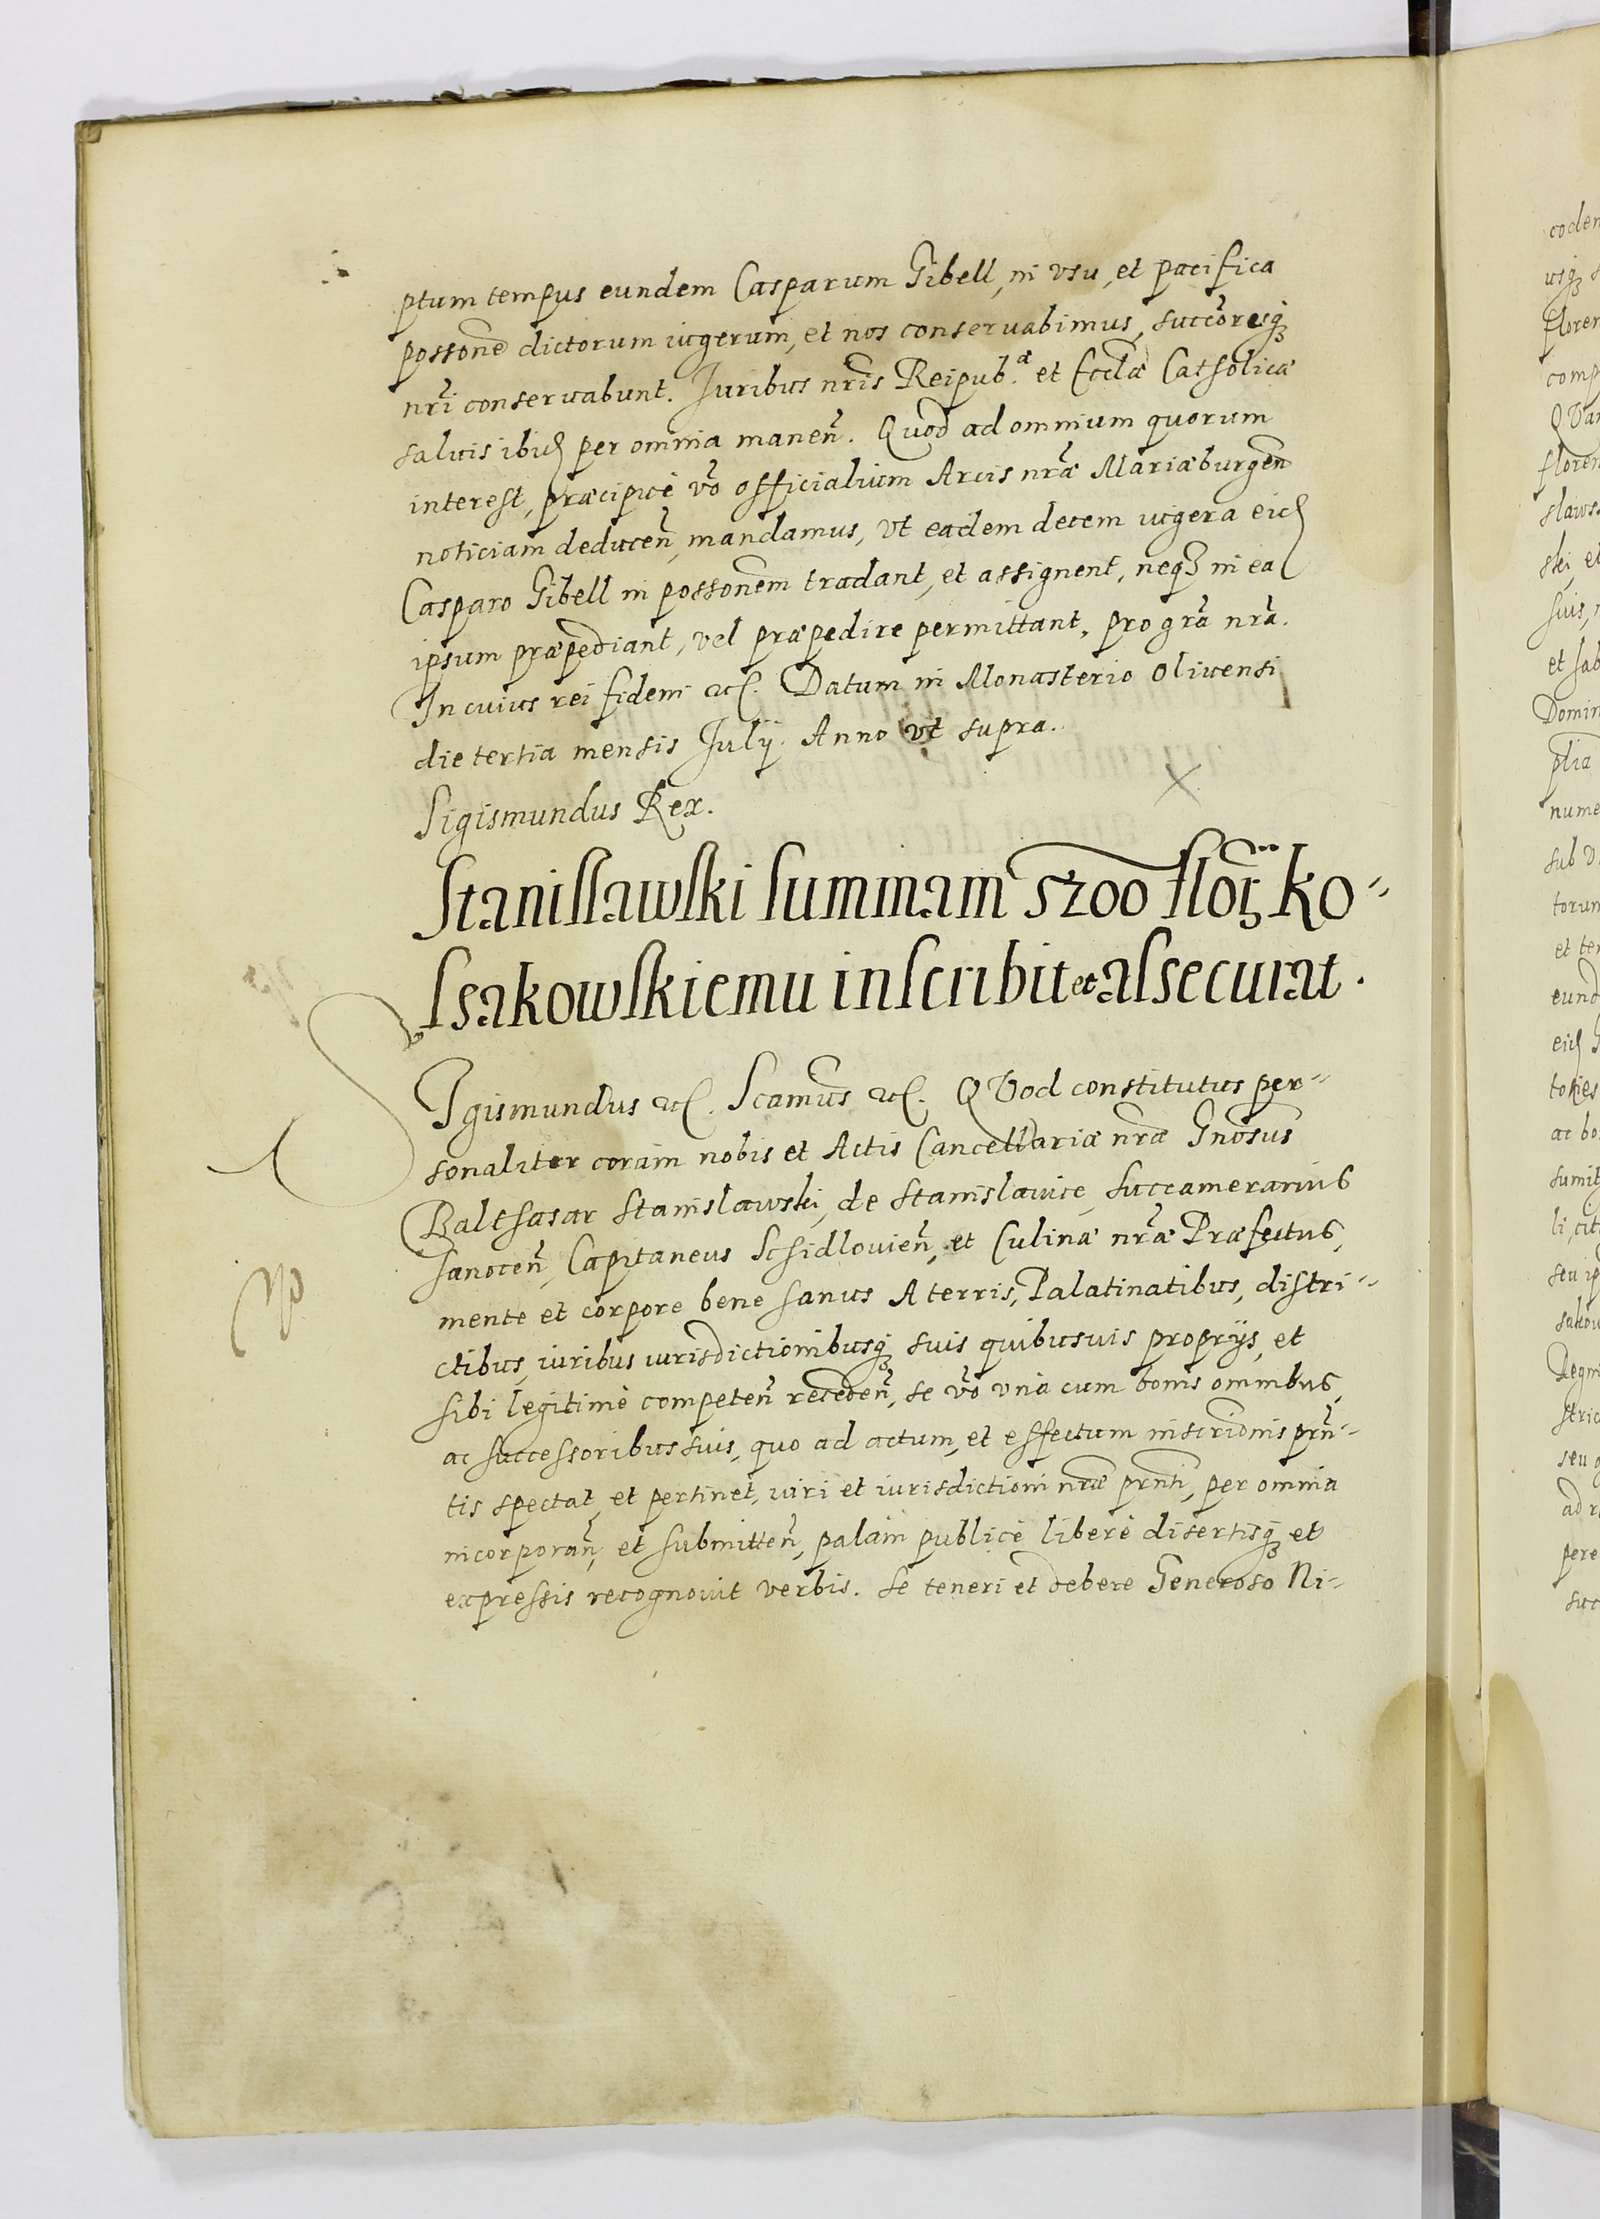 ptum tempus eundem Casparum Gibell, in vsu, et pacifica
possone dictorum iugerum, et nos conservabimus, succoresq3
nri conservabunt. Iuribus nris Reipub.æ et Ecclæ Catholicæ
salvis ibid per omnia manen. Quod ad omnium quorum
interest, præcipuè vo officialium Arcis nræ Mariæburgen
noticiam deducen, mandamus, vt eadem decem iugera eid
Casparo Gibell in possonem tradant, et assignent, neq3 in ea
ipsum præpediant, vel præpedire permittant. pro gra nra.
In cuius rei fidem etc. Datum in Monasterio Olivensi
die tertia mensis Julij. Anno vt supra.
Sigismundus Rex.
Stanislawski summam 5200 flor ko=
ssakowskiemu inscribit et assecurat.
Sigismundus etc. Scamus etc. QVod constitutus per=
sonaliter coram nobis et Actis Cancellariæ nræ Gnosus
Balthasar Stanislawski, de Stanislawice, succamerarius
Sanocen, Capitaneus Schidlovien, et Culinæ nræ Præfectus,
mente et corpore bene sanus A terris, Palatinatibus, distri=
ctibus, iuribus iurisdictionibusq3 suis quibusuis proprijs, et
sibi legitimè competen receden, se vo vnà cum bonis omnibus,
ac successoribus suis, quo ad actum, et effectum inscrionis prn=
tis spectat, et pertinet, iuri et iurisdictioni nræ prnti, per omnia
incorporan, et submitten, palàm publicè liberè disertisq3 et
expressis recognovit verbis. Se teneri et debere Generoso Ni=
coden
usq3
floren
comp
QVan
floren
slaws
ski, et
suis,
et sab
Domin
plia
nume
sub
torum
et ter
eund
eid G
toties
ac bo
sumit
licit
seu ip
sakow
Regni
stric
seu
ad r
pere
succ